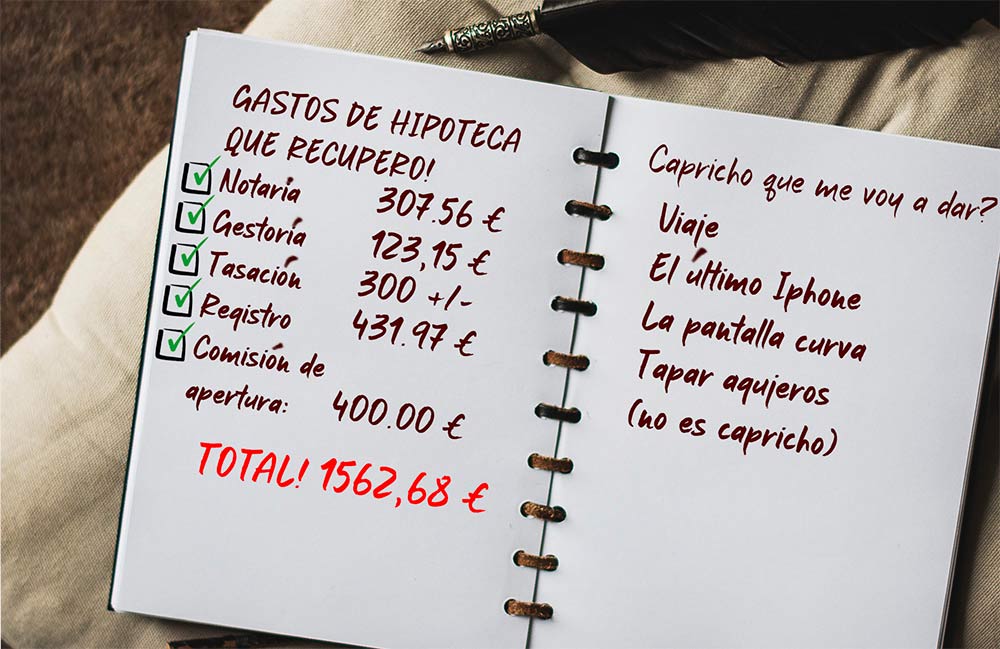 GASTOS DE HIPOTECA
QUE RECUPERO!
Notaria 307.56 €
Gestoría 123,15 €
Tasación 300 +/-
Registro 431.97 €
Comisión de
apertura: 400.00 €
TOTAL! 1562,68 €
Capricho que me voy a dar?
Viaje
El último Iphone
La pantalla curva
Tapar agujeros
(no es capricho)